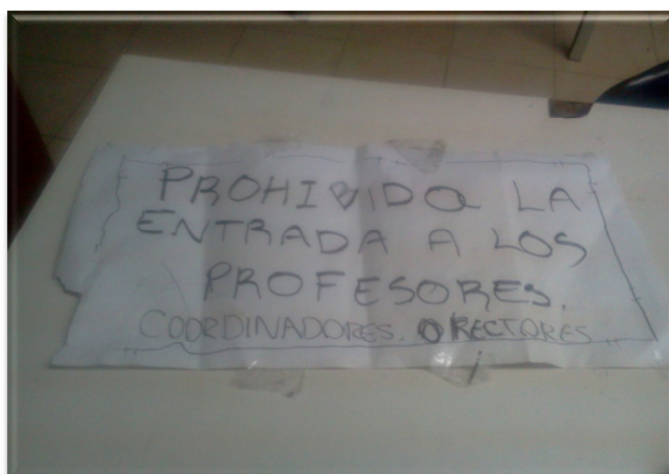 PROHIBIDO LA
ENTRADA A LOS
PROFESORES.
COORDINADORES. O RECTORES